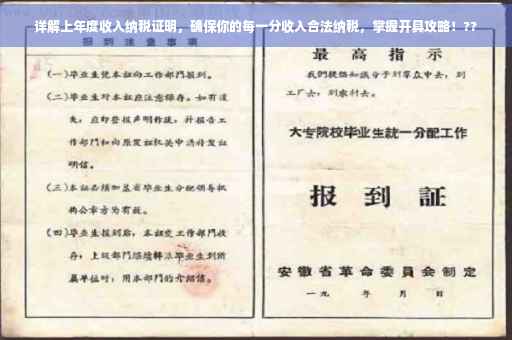 详解上年度收入纳税证明，确保你的每一分收入合法纳税，掌握开具攻略！??
报到注意事项
(一)毕业生凭本证向工作部门报到。
(二)毕业生对本证应注意保存。如有遗
失，应即登报声明作废，并报告工
作部门和向原发证机关申请补发证
明信。
(三)本证必须加盖省毕业生分配领导机
构公章方为有效。
(四)毕业生报到后，本证交工作部门收
存；上级部门
属单位时，用本部门的介绍信。
最高指示
我们提倡知识分子到群众中去，到
工厂去，到农村去。
大专院校毕业生统一分配工作
报到证
安徽省革命委员会制定
一九 年 月 日